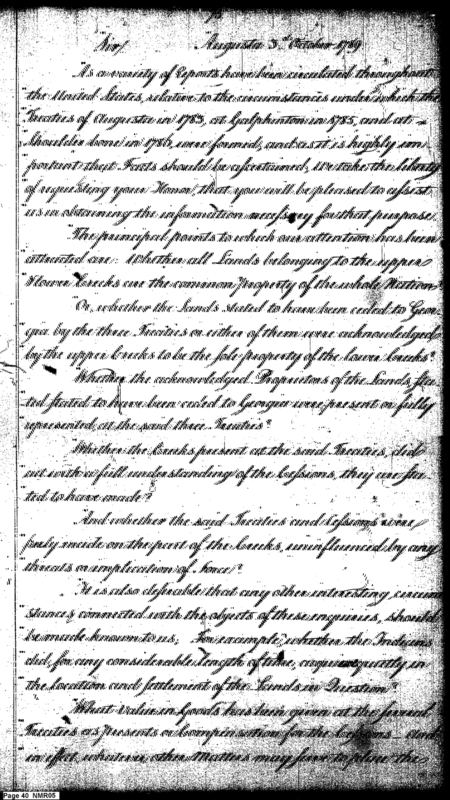 Sir/ Augusta 3.d October 1789
As a variety of Reports have been circulated throughout
the United States, relative to the circumstances under which the
Treaties of Augusta in 1783, at Galphinton in 1785, and at
Shoulder bone in 1786, were formed, and as it is highly im
portant that Facts should be ascertained, We take the liberty
of requesting your Honor, that you will be pleased to assist
us in obtaining the information necessary for that purpose.
The principal points to which our attention has been
attracted are: Whether all Lands belonging to the upper
& lower Creeks are the common property of the whole Nation?
Or, whether the Lands stated to have been ceded to Geor-
gia by the three Treaties or either of them were acknowledged
by the upper Creeks to be the sole property of the lower Creeks?
Whether the acknowledged Proprietors of the Lands, sta
ted stated to have been ceded to Georgia were present or fully
represented at the said three Treaties?
Whether the Creeks present at the said Treaties, did
act with a full understanding of the Cessions, they are sta
ted to have made?
And whether the said Treaties and Cessions were
freely made on the part of the Creeks, uninfluenced by any
threats or implication of Force?
It is also desirable that any other interesting, circum
stances, connected with the objects of these enquiries, should
be made known to us; For example, whether the Indians
did, for any considerable length of time, acquiesce quietly in
the location and settlement of the Lands in Question?
What Value in Goods has been given at the several
Treaties as presents or Compensation for the Cessions— And
in effect, whatever other Matters may serve to place the
Page 40 NMR05